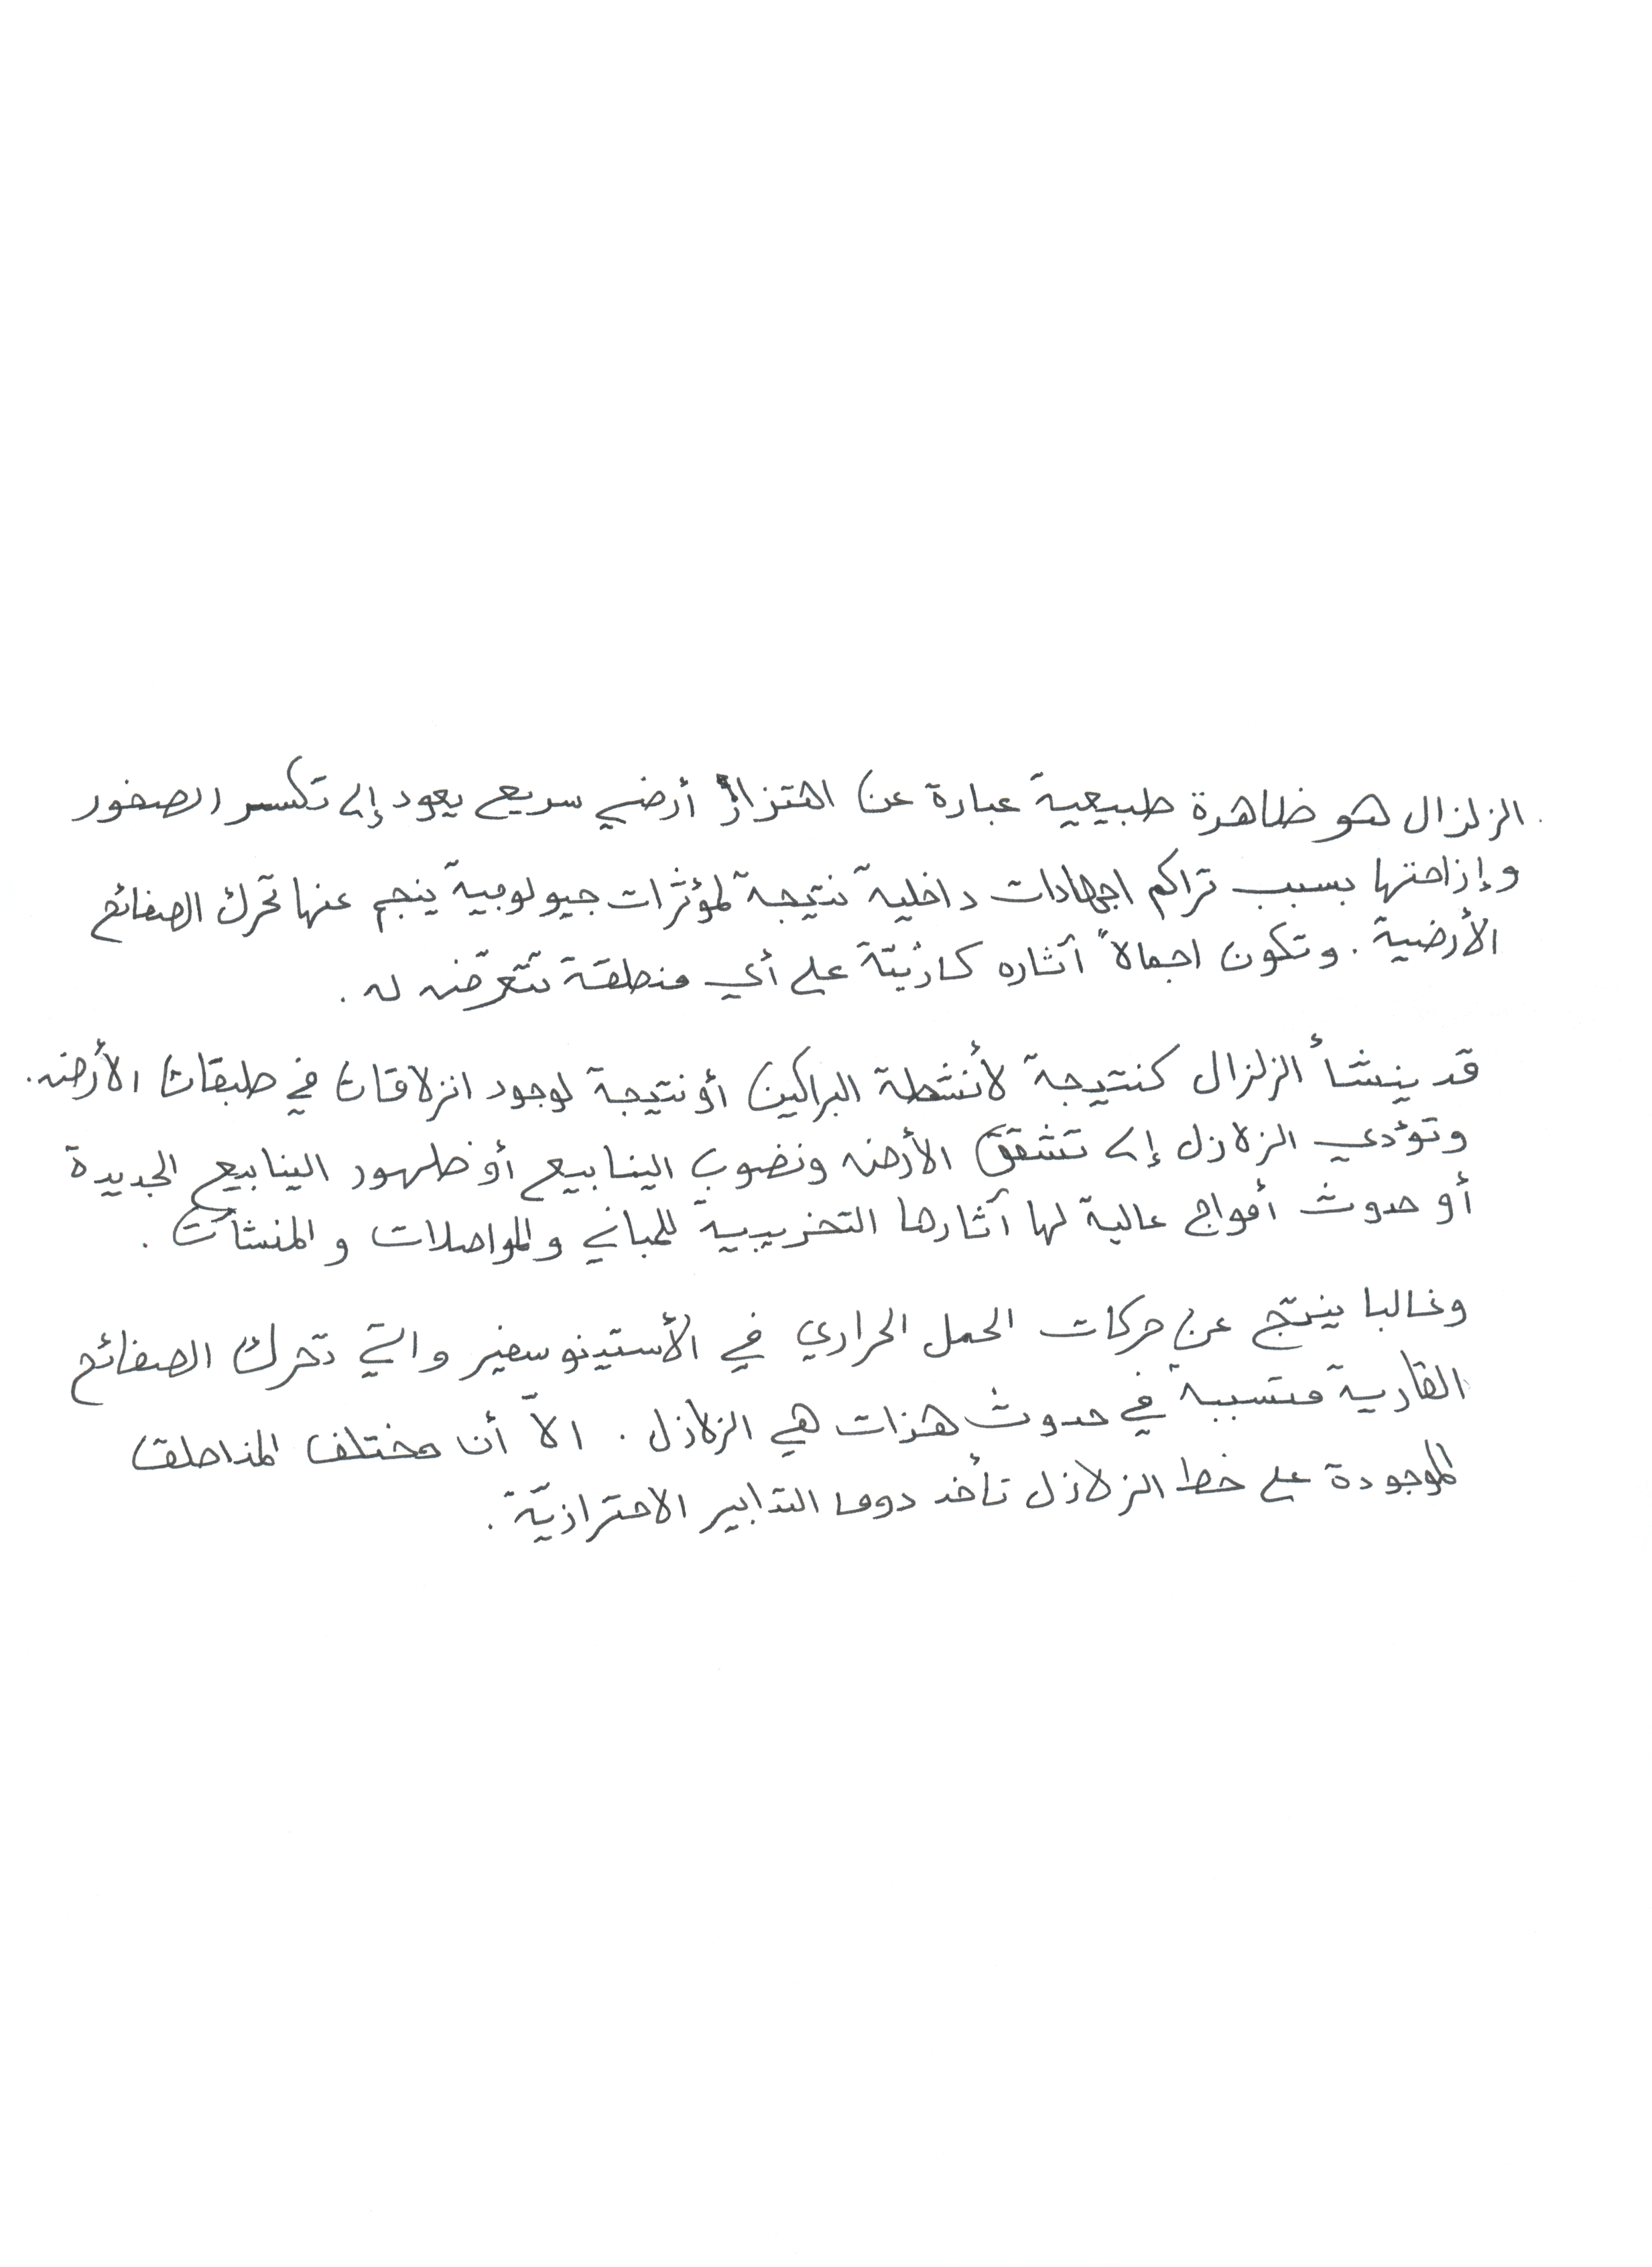 الزلزال هو ظاهرة طبيعية عبارة عن اهتزاز أرضي سريع يعود إلى تكسر الصخور
وإزاحتها بسبب تراكم اجهادات داخلية نتيجة لمؤثرات جيولوجية ينجم عنها تحرك الصفائح
الأرضية. وتكون اجمالاً آثاره كارثيّة على أي منطقة تتعرّض له.
قد ينشأ الزلزال كنتيجة لأنشطة البراكين أو نتيجة لوجود انزلاقات في طبقات الأرض.
وتؤدي الزلازل إلى تشقق الأرض ونضوب الينابيع أو ظهور الينابيع الجديدة
أو حدوث أمواج عالية لها آثارها التخريبية للمباني والمواصلات والمنشآت.
وغالبا ينتج عن حركات الحمل الحراري في الأستينوسفير والتي تحرك الصفائح
القارية متسببة في حدوث هزات هي الزلازل. الاّ أن مختلف المناطق
الموجودة على خط الزلازل تأخذ دوما التدابير الاحترازيّة.